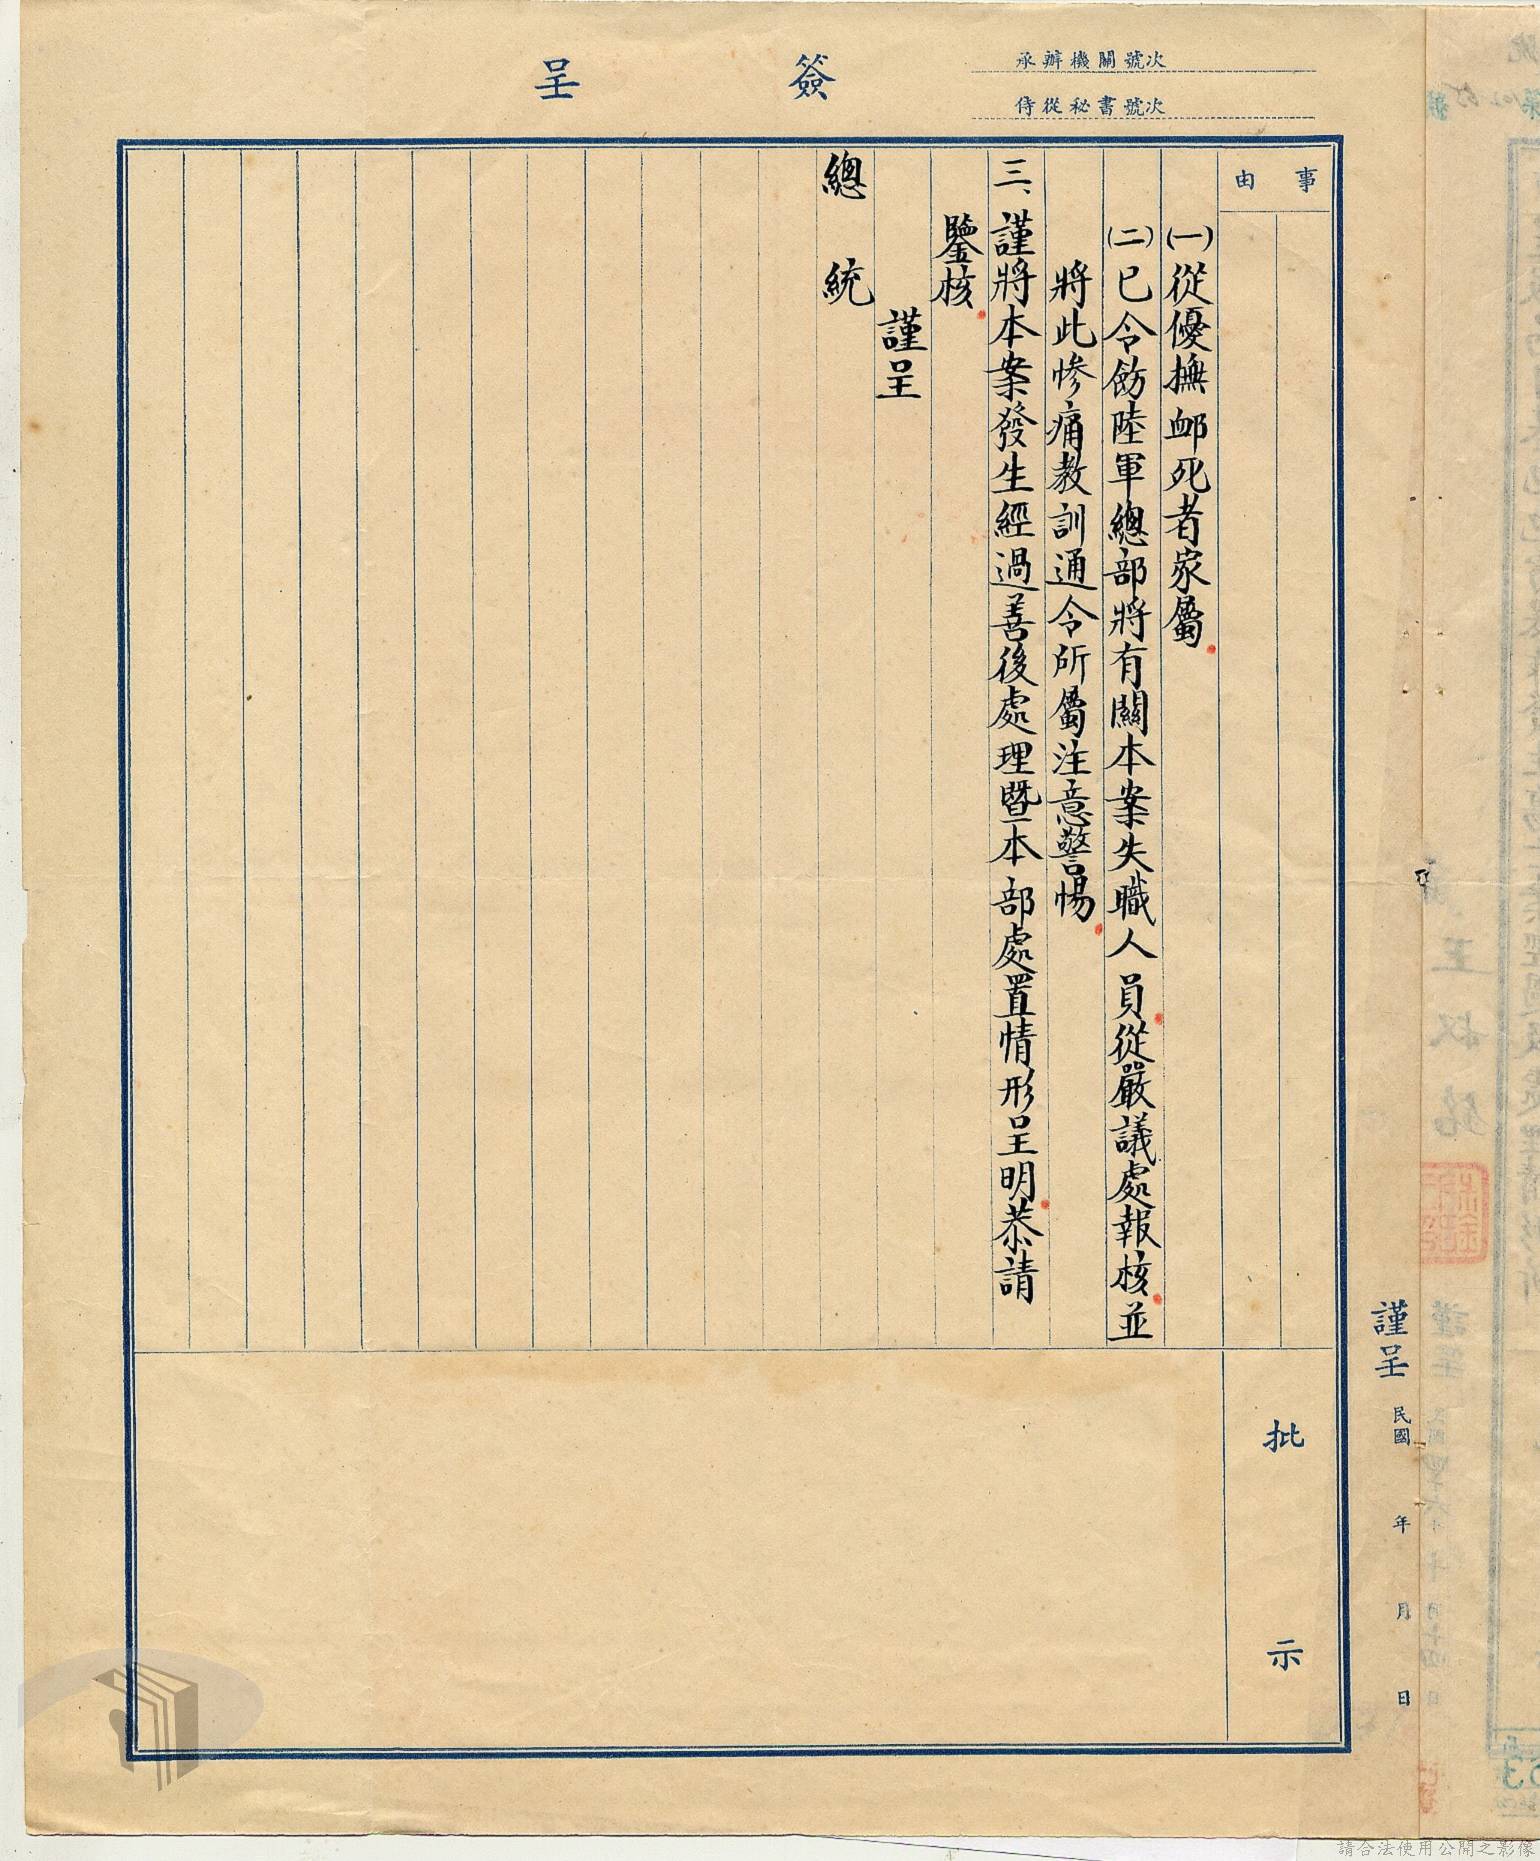 簽呈
承辦機關號次
侍從秘書號次
事由
㈠從優撫卹死者家屬
㈡已令飭陸軍總部將有關本案失職人員從嚴議處報核並
將此慘痛教訓通令所屬注意警惕
三、謹將本案發生經過善後處理暨本部處置情形呈明恭請
鑒核
謹呈
總統
批示
謹呈
民國 年 月 日
請合法使用公開之影像